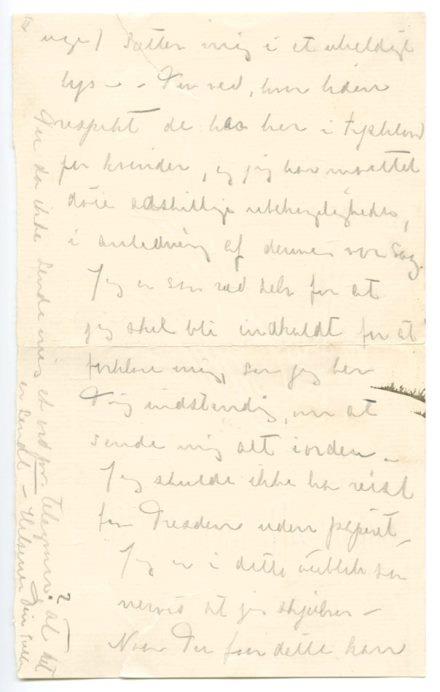 uge) sætter mig i et uheldigt
lys – – Du ved, hvor liden
respekt de har her i Tyskland
for kvinder, og jeg har maattet
døie adskillige ubehageligheder,
i anledning af denne vor sag.
Jeg er saa ræd selv for at
jeg skal bli indkaldt for at
forklare mig, saa jeg ber
Dig indstændig, om at
sende mig alt iorden –
Jeg skulde ikke ha reist
fra Dresden uden papiret –
Jeg er i dette øieblik saa
nervøs at jeg skjælver –
Naar Du faar dette kan
Du da ikke sende mig et ord pr. telegram? at det
er sendt – Hilsener Din